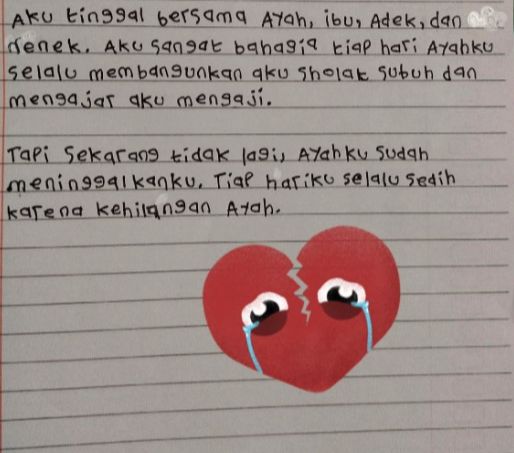 Aku tinggal bersama Ayah, ibu, Adek, dan
Nenek. Aku sangat bahagia tiap hari Ayahku
selalu membangunkan aku sholat subuh dan
mengajar aku mengaji.
Tapi sekarang tidak lagi, Ayahku sudah
meninggalkanku. Tiap hariku selalu sedih
karena kehilangan Ayah.